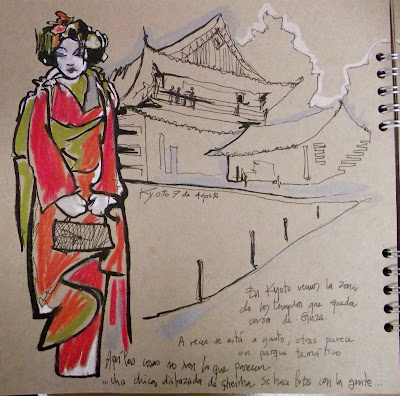 Kyoto 7 de agosto
En Kyoto vemos la zona
de los templos que queda
cerca de Ginza.
A veces se está a gusto, otras parece
un parque temático
Aquí las cosas no son lo que parecen
... Una chica disfrazada de gheisha se hace fotos con la gente...